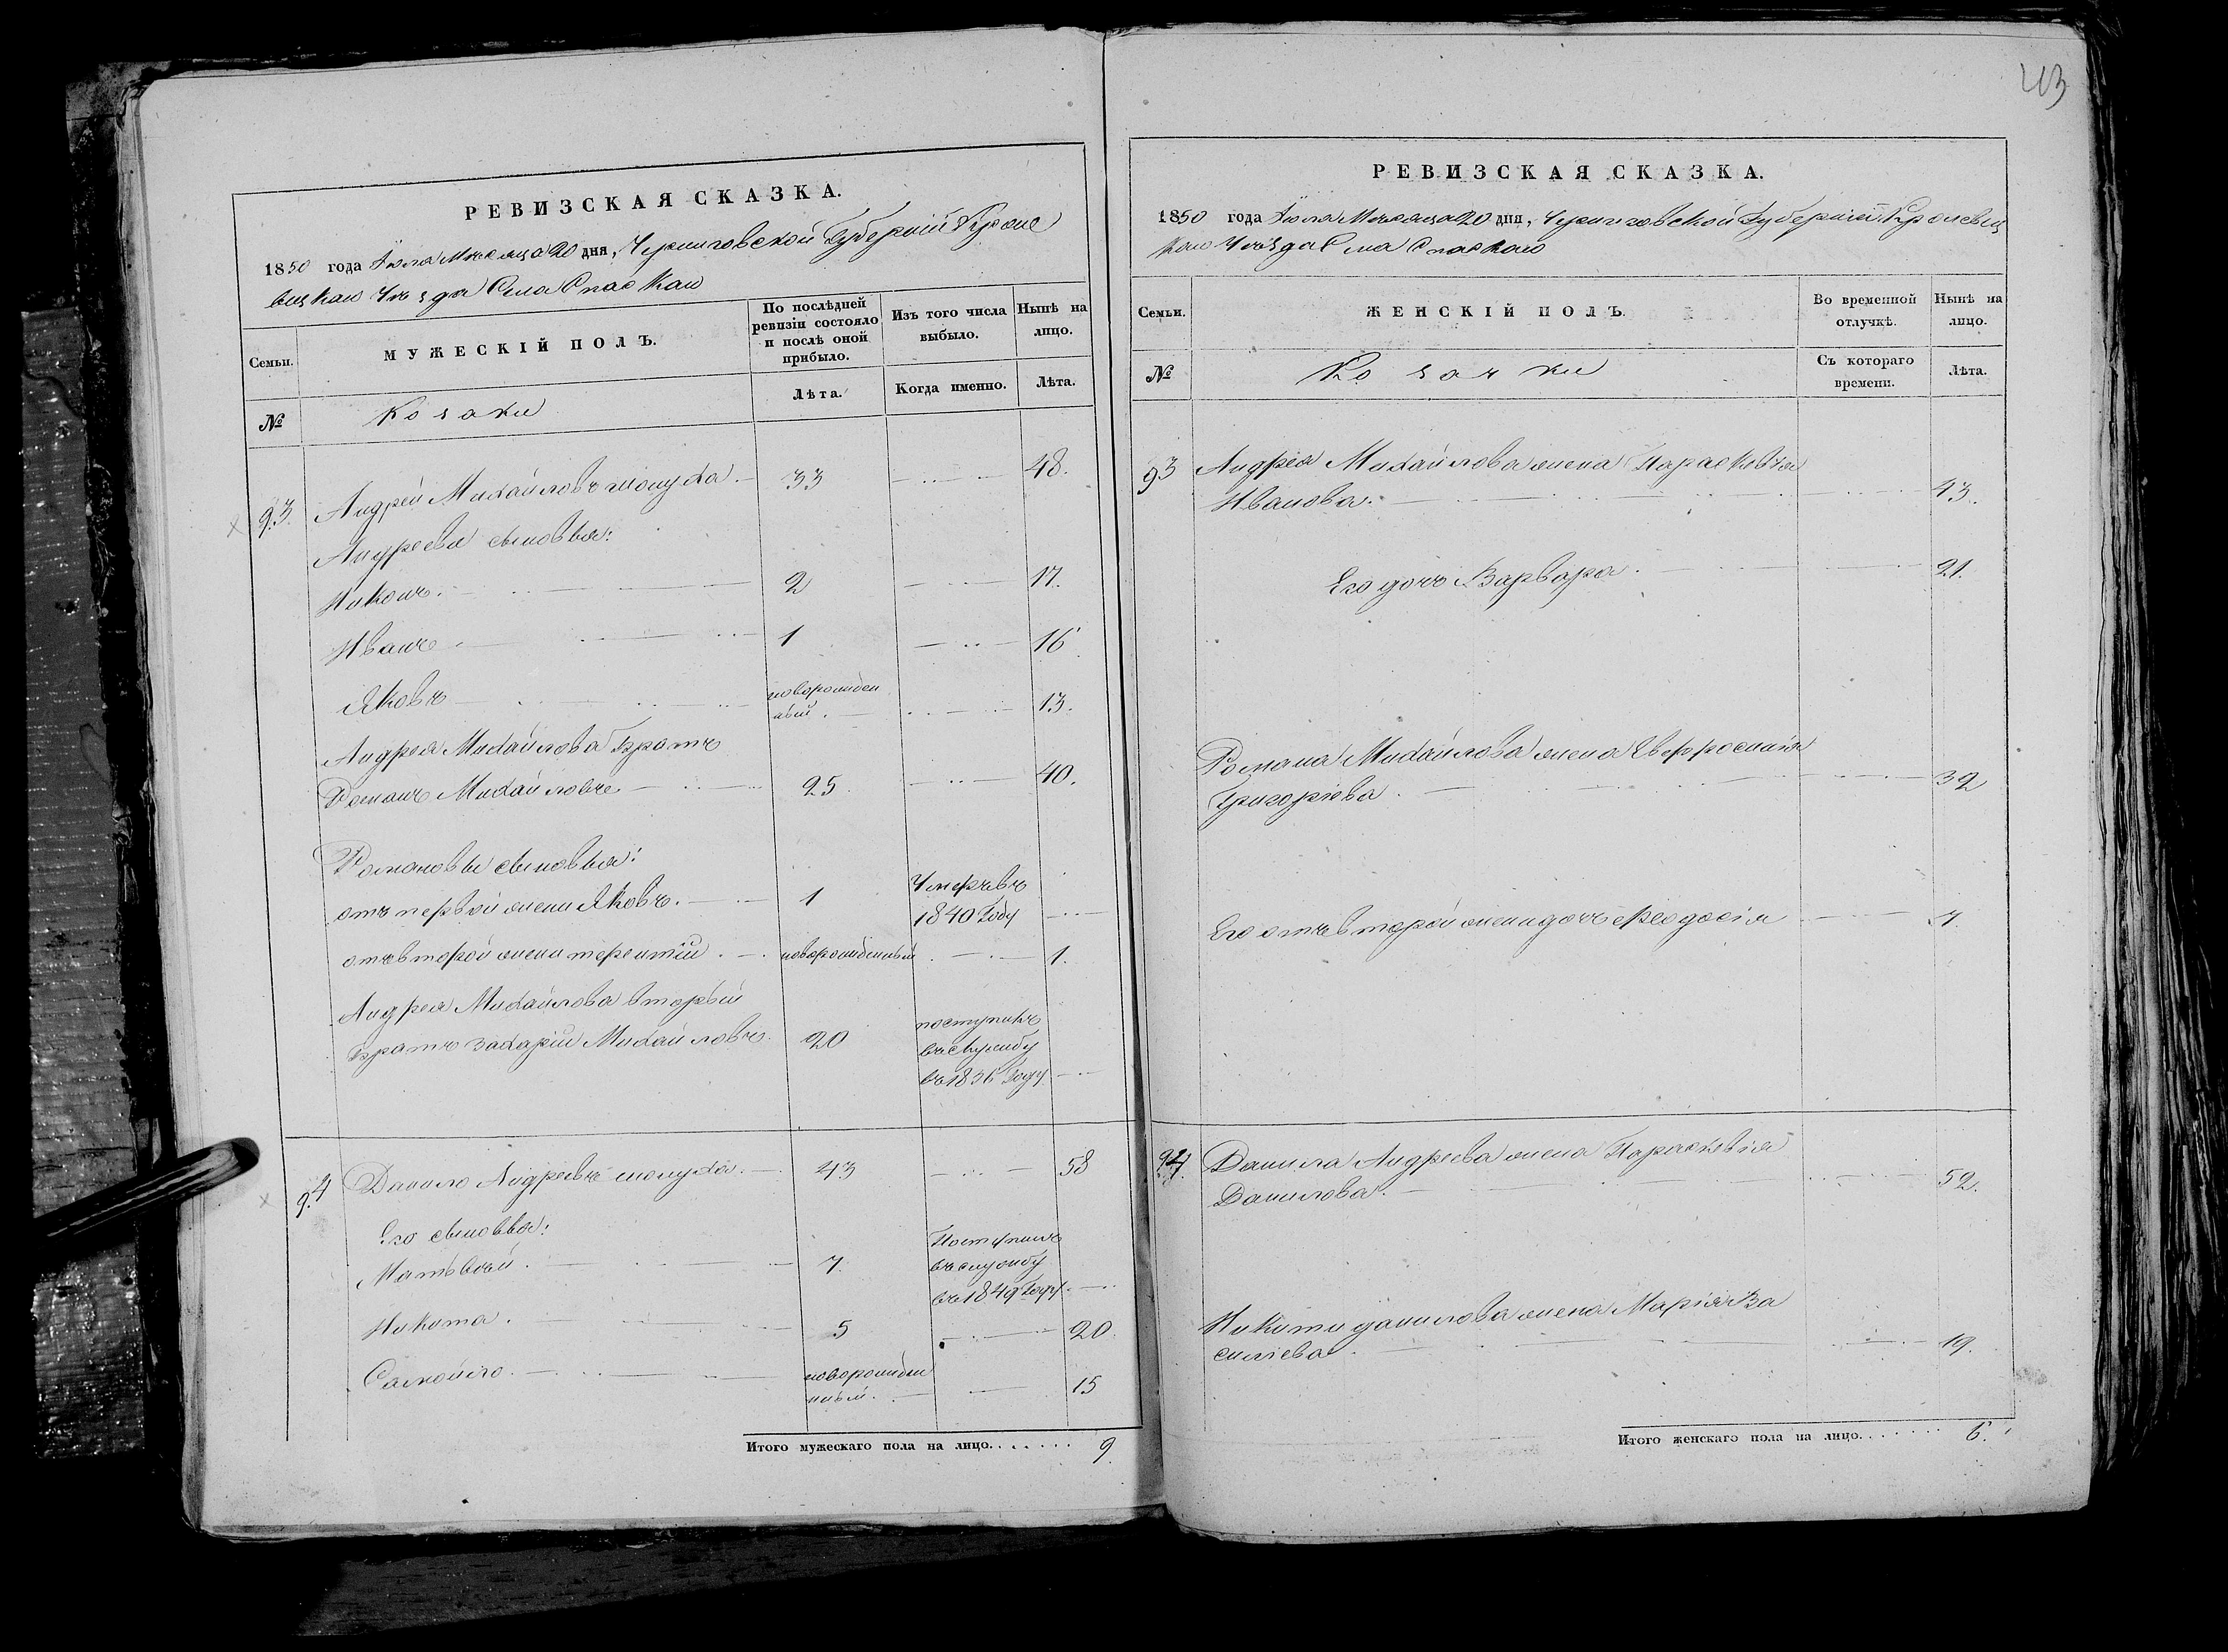 РЕВИЗСКАЯ СКАЗКА.
1850 года Іюля Месяца 20 дня, Черниговской Губерніи Кроле
вецкаго Уезда Села Спаскаго
Семьи.
МУЖЕСКІЙ ПОЛЪ.
По послѣдней ревизіи состояло и послѣ оной прибыло.
Изъ того числа выбыло.
Нынѣ на лицо.
№
Козаки
Лѣта.
Когда именно.
Лѣта.
93. Андрей Михайловъ 33 48.
Андреевы сыновья:
Никонъ. 2 17.
Иванъ 1 16
Яковъ новорожден
ный. 13.
Андрея Михайлова братъ
Романъ Михайловъ 25 40.
Романовы сыновья:
отъ первой жены Яковъ. 1 Умеръ въ
1840 году
отъ второй жены терентій. новорожденный 1.
Андрея Михайлова вторый
братъ захарій Михайловъ. 20 поступилъ
въ службу
въ 1836 году
94 Данило Андреевъ 43 58
Его сыновья:
Матвѣй. 7. Поступилъ
въ службу
въ 1849 году.
Никита. 5 20.
Самойло. новорожден
ный. 15
Итого мужескаго пола на лицо. 9.
43
РЕВИЗСКАЯ СКАЗКА.
1850 года Іюля Месяца 20 дня, Черниговской Губерніи Кролевец
каго Уезда Села Спаскаго
Семьи.
ЖЕНСКІЙ ПОЛЪ.
Во временной отлучкѣ.
Нынѣ на лицо.
№
Козачки
Съ котораго времени.
Лѣта.
93 Андрея Михайлова жена Парасковія
Иванова. 43.
Его дочь Варвара. 21.
Романа Михайлова жена Евфросинія
Григоріева. 32
Его отъ второй жены дочь феодосія 7.
94. Данила Андреева жена Парасковія
Данилова. 52.
Никиты данилова жена Марія Ва
силіева. 19.
Итого женскаго пола на лицо. 6.